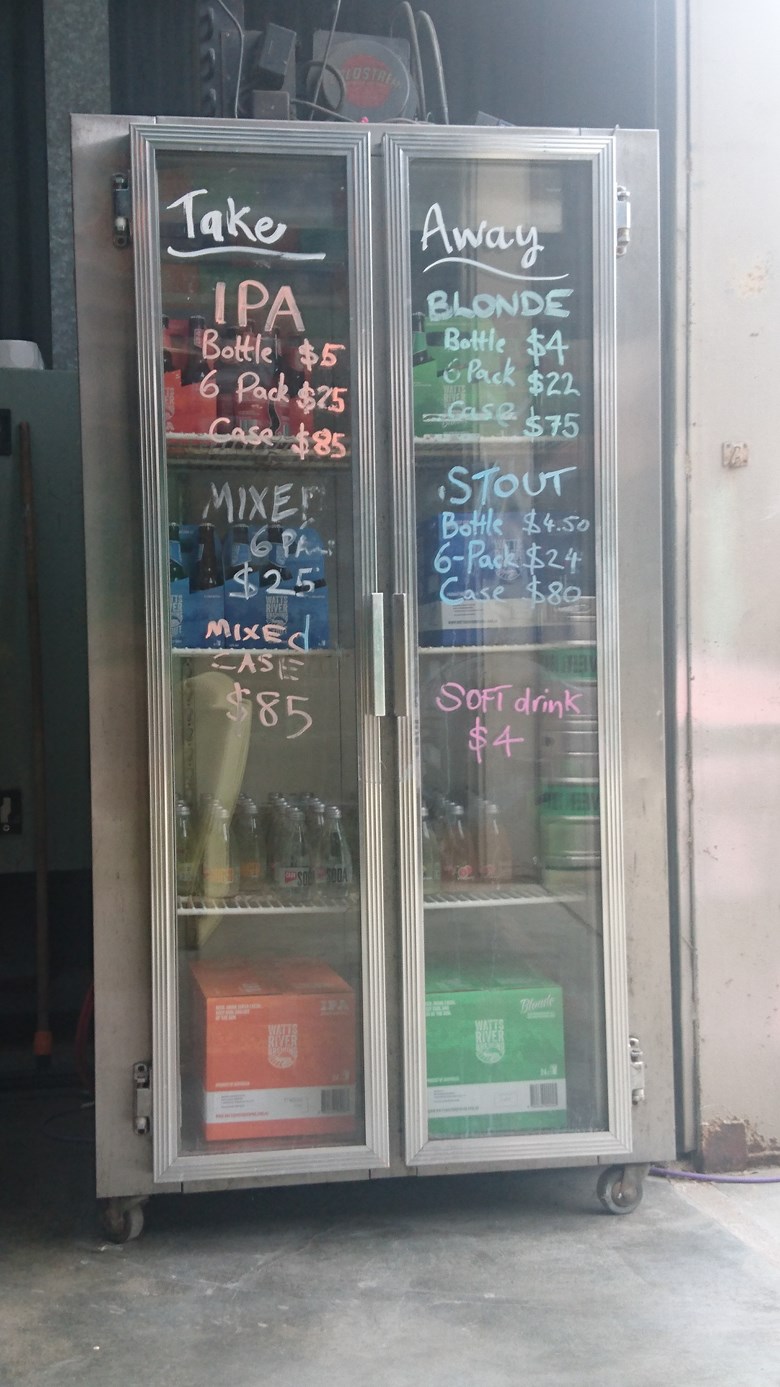 Take
IPA
Bottle $5
6 Pack $25
Case $85
MIXED
6 PA
$25
MIXED
CASE
$85
Away
BLONDE
Bottle $4
6 Pack $22
Case $75
STOUT
Bottle $4.50
6-Pack $24
Case $80
SOFT drink
$4
WATTS
RIVER
SODA
IPA
WATTS
RIVER
BREWING
Blonde
WATTS
RIVER
BREWING